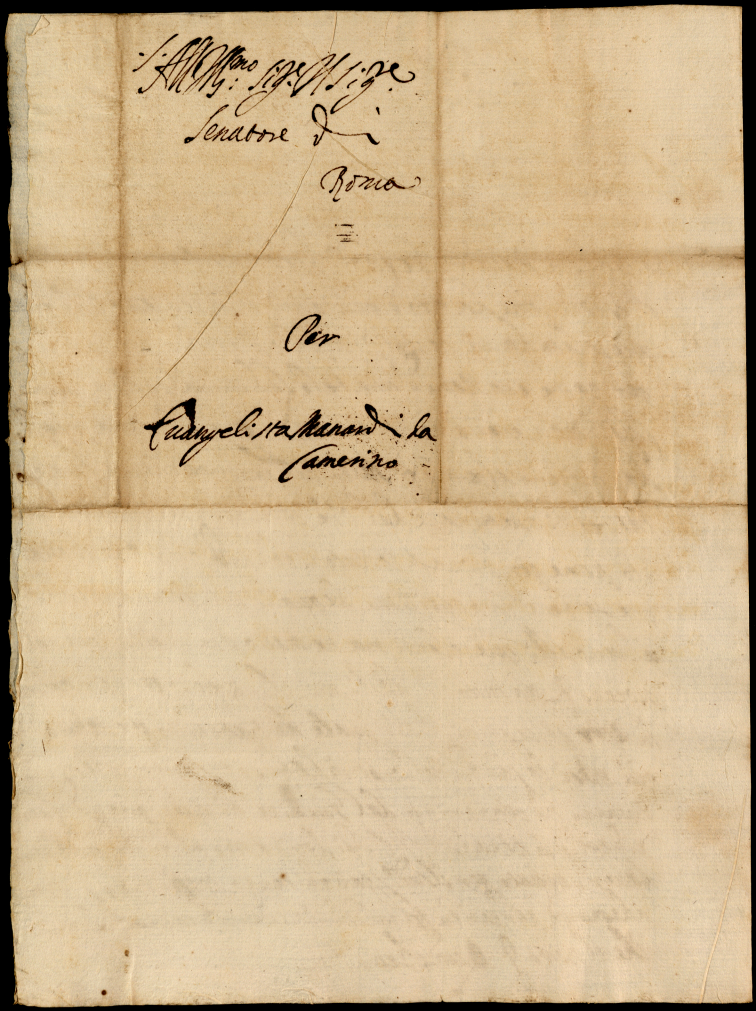 All Ill:mo Sig:re Il Sig:re
Senatore di
Roma
Per
Evangelista Manardi da
Camerino